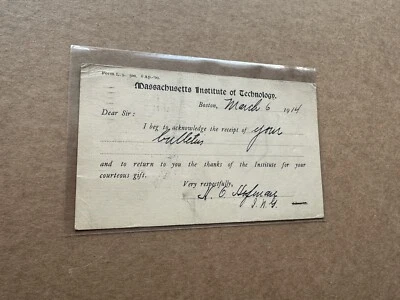 Massachusetts Institute of Technology.
Boston, March 6 1914
Dear Sir:
I beg to acknowledge the receipt of your
bulletin
and to return you the thanks of the Institute for your
courteous gift.
Very respectfully,